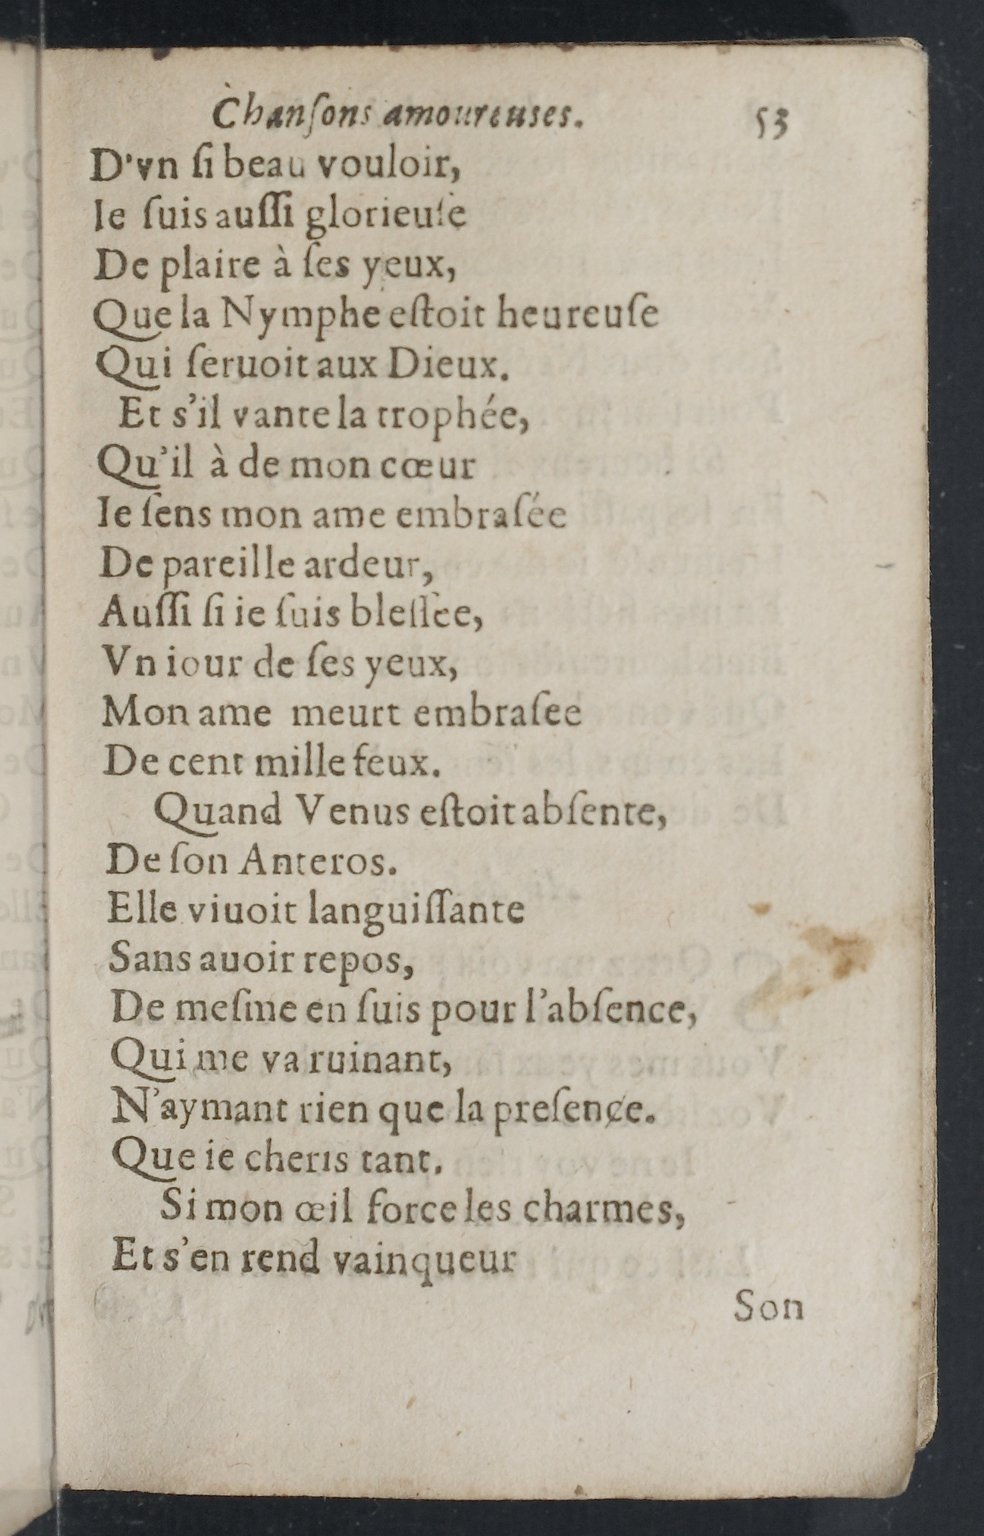 Chanſons amoureuses. 53
D'vn ſi beau vouloir,
Ie ſuis auſſi glorieuſe
De plaire à ſes yeux,
Que la Nymphe eſtoit heureuſe
Qui ſeruoit aux Dieux.
Et s'il vante la trophée,
Qu'il à de mon cœur
Ie ſens mon ame embraſée
De pareille ardeur,
Auſſi ſi ie ſuis bleſſee,
Vn iour de ſes yeux,
Mon ame meurt embraſee
De cent mille feux.
Quand Venus eſtoit abſente,
De ſon Anteros.
Elle viuoit languiſſante
Sans auoir repos,
De meſme en ſuis pour l'abſence,
Qui me va ruinant,
N'aymant rien que la preſence.
Que ie cheris tant.
Si mon œil force les charmes,
Et s'en rend vainqueur
Son